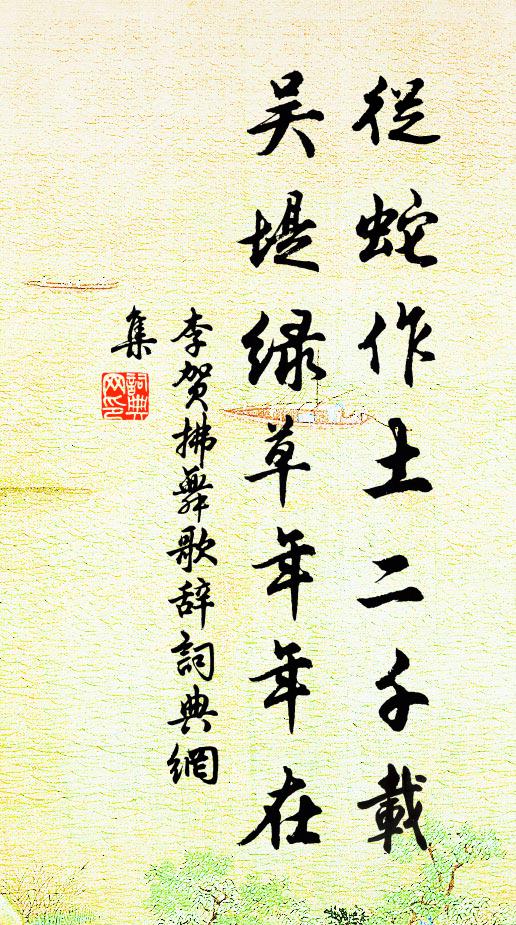 從蛇作土二千載
吳堤绿草年年在
李贺拂舞歌辞詞典網
集
詞典
网印